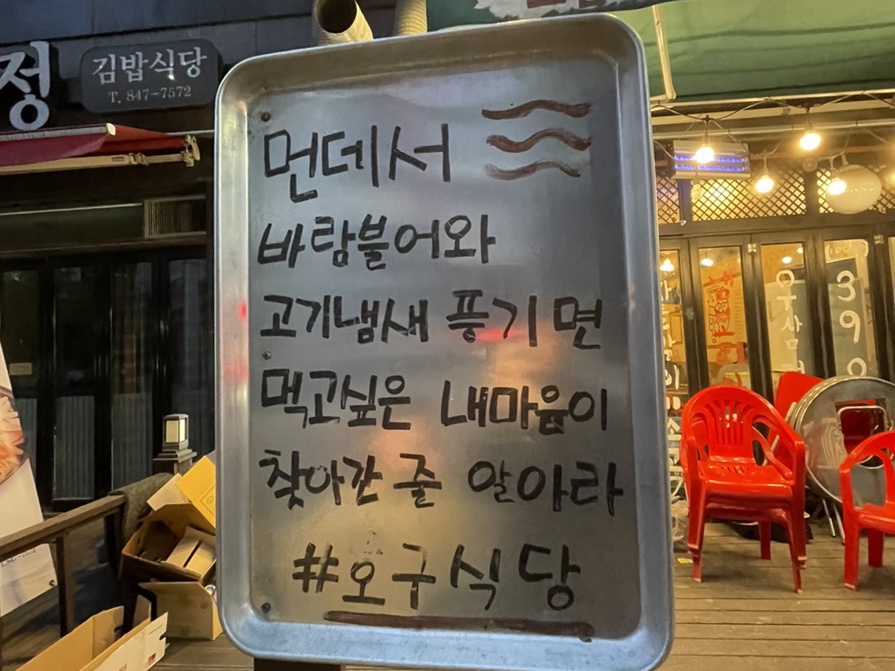 정
김밥식당
T. 847-7572
먼데서
바람불어와
고기냄새 풍기면
먹고싶은 내마음이
찾아간 줄 알아라
#오구식당